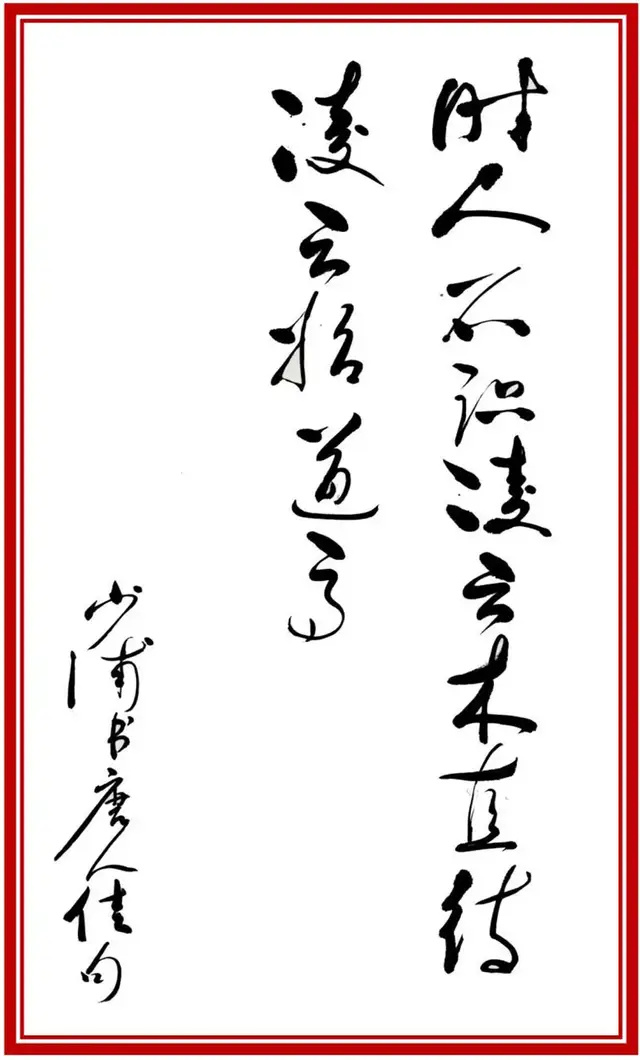 时人不识凌云木直待
凌云始道高
少浦书唐人佳句